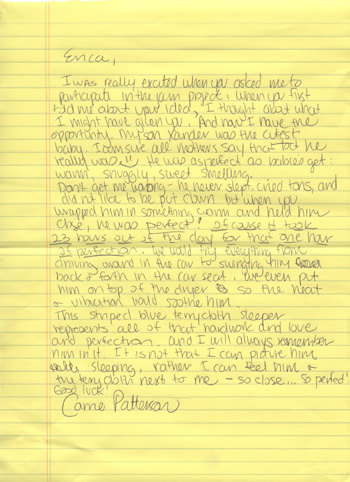 Erica,
I was really excited when you asked me to
participate in the project. When you first
told me about your idea, I thought about what
I might have given you. And now I have the
opportunity. My son Xander was the cutest
baby. I am sure all mothers say that but he
really was! He was as perfect as babies get:
warm, snuggly, sweet smelling.
Don't get me wrong - he never slept, cried tons, and
did not like to be put down but when you
wrapped him in something warm and held him
close, he was perfect! Of course it took
23 hours out of the day for that one hour
of perfection. We would try everything from
driving around in the car to swinging him
back & forth in the car seat. We even put
him on top of the dryer so the heat
& vibration would soothe him.
This striped blue terrycloth sleeper
represents all of that hardwork and love
and perfection. and I will always remember
him in it. It is not that I can picture him
sleeping, rather I can feel him &
the terrycloth next to me - so close... so perfect!
Good luck!
Carrie Patterson